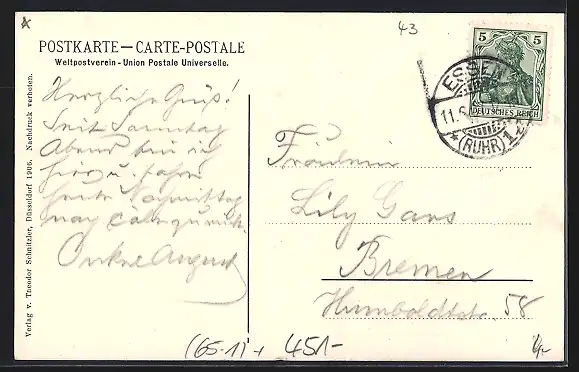 43
POSTKARTE—CARTE-POSTALE
Weltpostverein - Union Postale Universelle.
5 5
DEUTSCHES REICH
ESSEN
11.5.
* (RUHR) 1
Herzliche Grüß!
Seit Samstag
Abend bin ich
hier u. fahre
heute Nachmittag
nach Cöln zurück.
Onkel August
Fräulein
Lily Gans
Bremen
Humboldtstr. 58
Verlag v. Theodor Schnitzler, Düsseldorf 1906. Nachdruck verboten.
(65-1)+ 451-